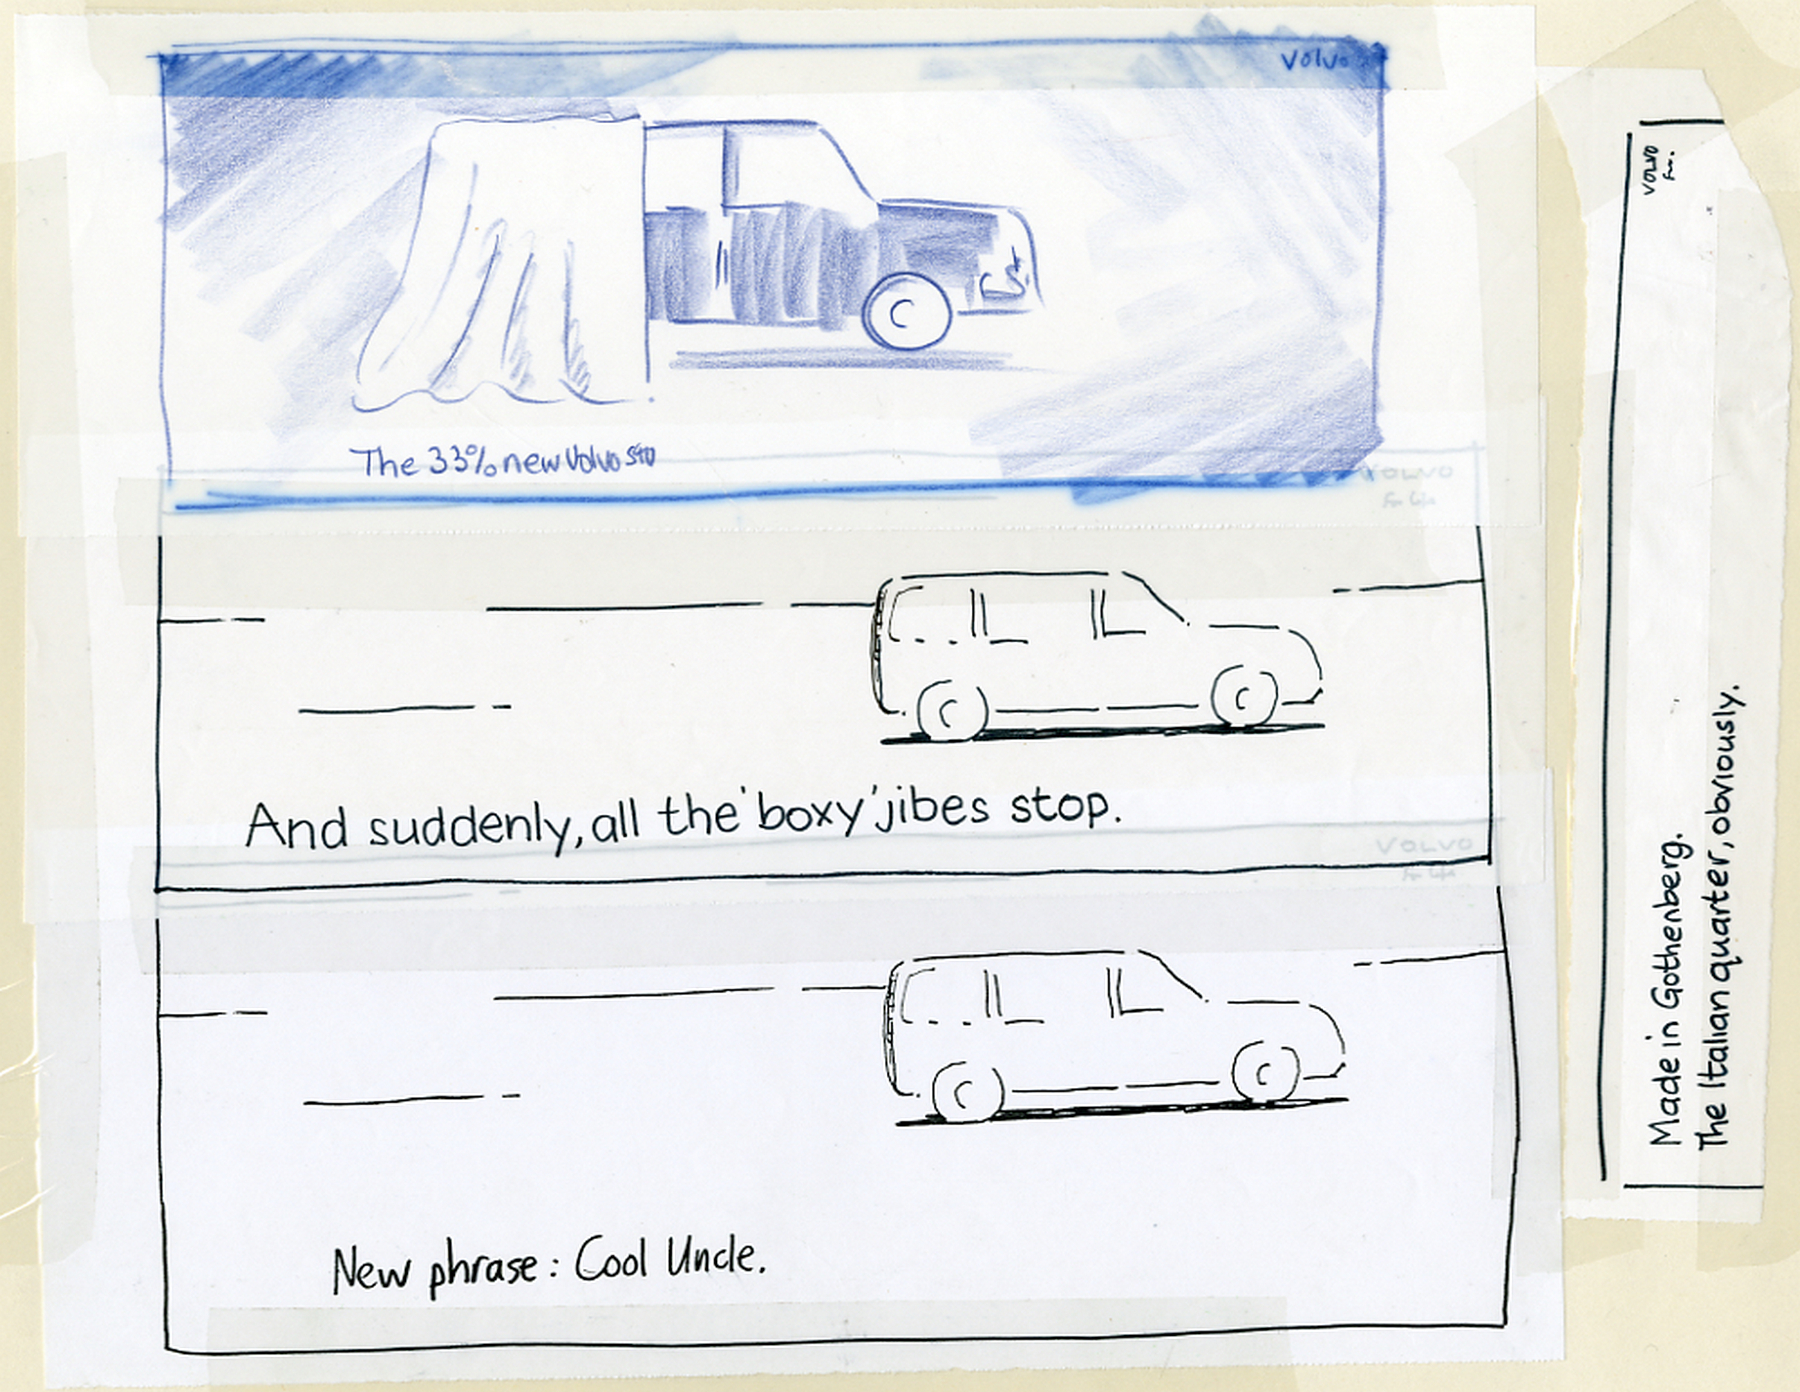 Volvo
The 33% new Volvo
VOLVO
For life
And suddenly, all the 'boxy' jibes stop.
VOLVO
For life
New phrase: Cool Uncle.
VOLVO
For.
Made in Gothenberg.
The Italian quarter, obviously.